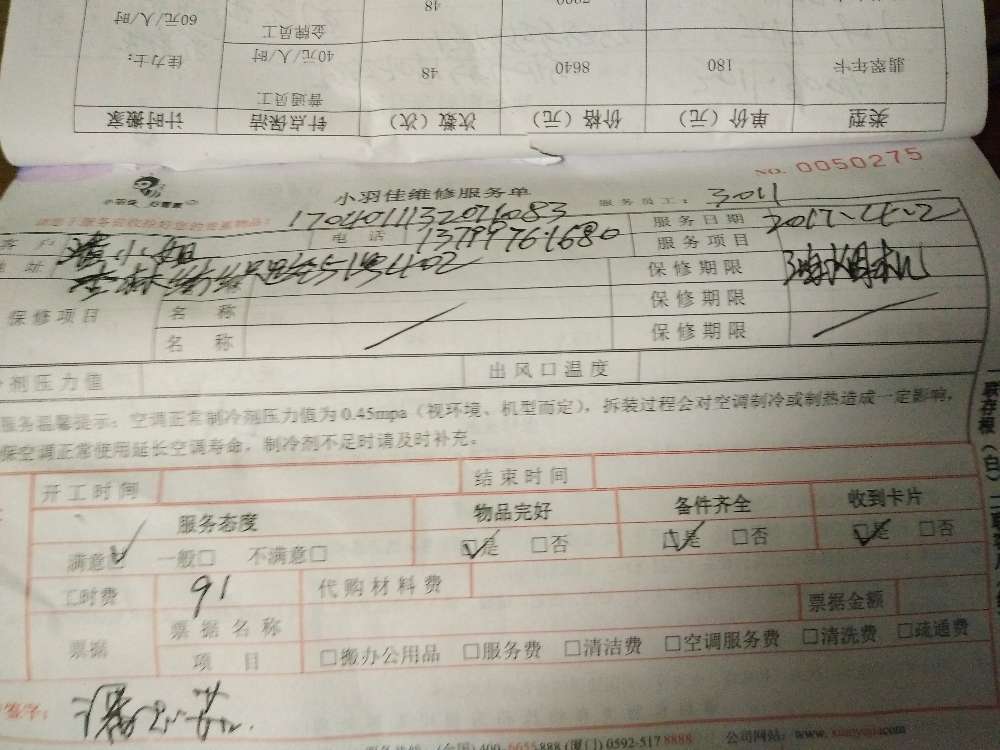 60元/人/时 金牌员工 48
佳力士： 40元/人/时 48 8640 180 翡翠年卡
普通员工
计时搬家 钟点保洁 次数（次） 价格（元） 单价（元） 类型
NO. 0050275
小羽佳维修服务单
服务员工： 3011
17040113207
客户 小姐 电话 服务日期 2017-4-2
地址 服务项目
保修期限
保修项目 名称 保修期限
名称 保修期限
剂压力值 出风口温度
服务温馨提示：空调正常制冷剂压力值为0.45mpa（视环境、机型而定），拆装过程会对空调制冷或制热造成一定影响，
保空调正常使用延长空调寿命，制冷剂不足时请及时补充。
开工时间 结束时间
服务态度 物品完好 备件齐全 收到卡片
满意☑ 一般□ 不满意□ ☑是 □否 ☑是 □否 ☑是 □否
工时费 91 代购材料费
票据 票据名称 票据金额
项目 □搬办公用品 □服务费 □清洁费 □空调服务费 □清洗费 □疏通费
签字：
(全国) 400-6655888 (厦门) 0592-5178888 公司网站：www.xiaoyujia.com